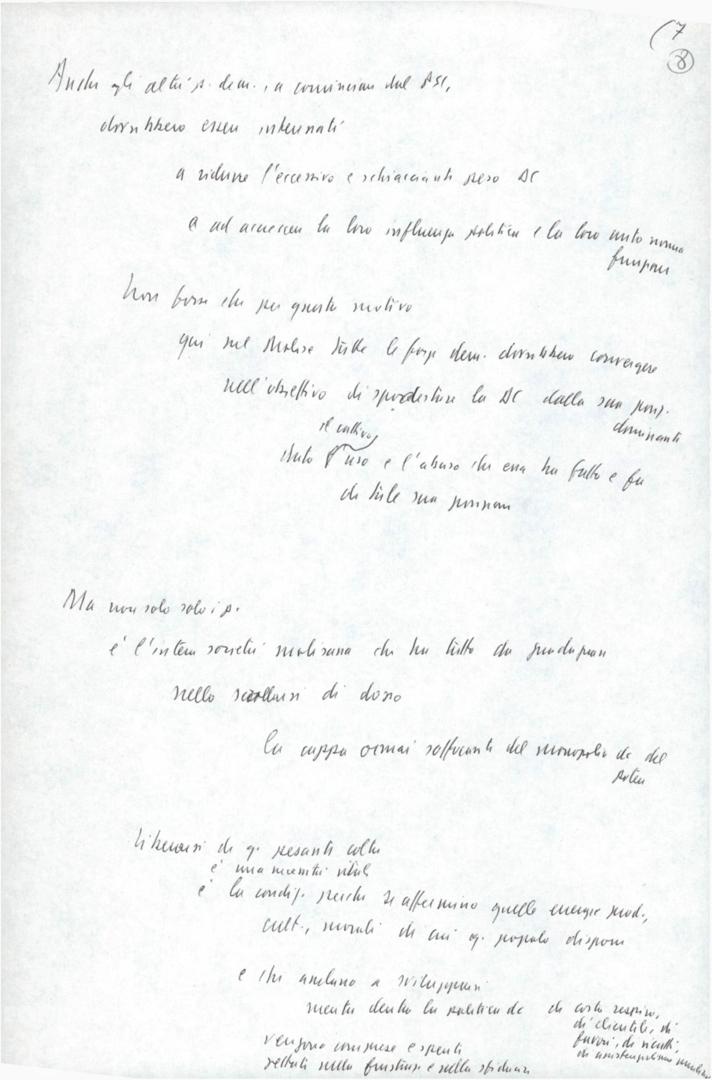 (7
8
Anche gli altri p. dem., a cominciare dal PSI,
dovrebbero essere interessati
a ridurre l'eccessivo e schiacciante peso DC
e ad accrescere la loro influenza politica e la loro autonoma
funzione
Non fosse che per questo motivo
qui nel Molise tutte le forze dem. dovrebbero convergere
nell'obiettivo di spodestare la DC dalla sua posiz.
dominante
il cattivo
dato l'uso e l'abuso che essa ha fatto e fa
di tale sua posizione
Ma non solo solo i p.
è l'intera società molisana che ha tutto da guadagnare
nello scrollarsi di dosso
la cappa ormai soffocante del monopolio dc del
potere
Liberarsi da q. pesante coltre
è una necessità vitale
è la condiz. perché si affermino quelle energie prod.,
cult., morali di cui q. popolo dispone
e che anelano a svilupparsi
mentre dentro la politica dc di corto respiro,
di clientele, di
favori, di ricatti,
di assistenzialismo
vengono compresse e spente
gettate nella frustrazione e nella sfiducia